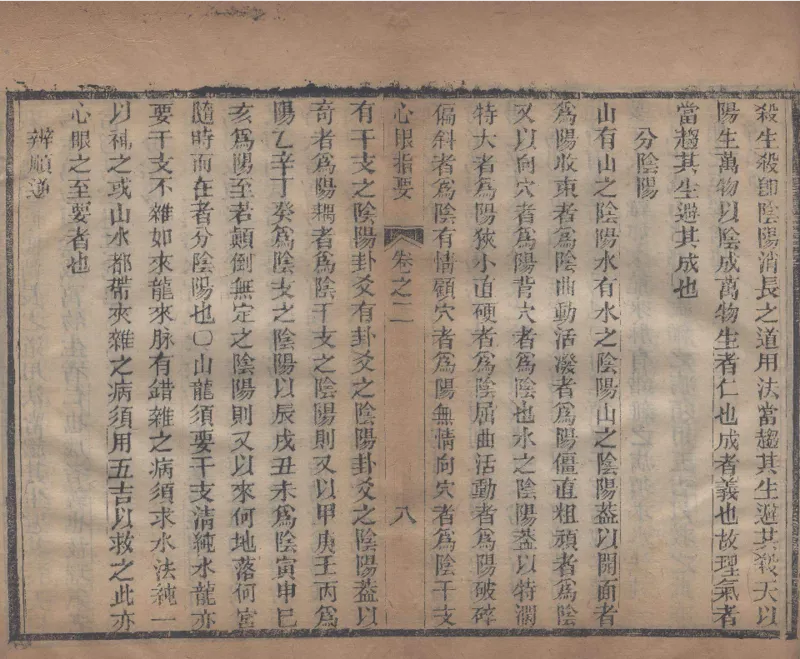 殺生殺卽陰陽消長之道用法當趨其生避其殺天以
陽生萬物以陰成萬物生者仁也成者義也故理氣者
當趨其生避其成也
分陰陽
山有山之陰陽水有水之陰陽山之陰陽葢以開面者
爲陽收束者爲陰曲動活潑者爲陽僵直粗頑者爲陰
又以向穴者爲陽背穴者爲陰也水之陰陽葢以特濶
特大者爲陽狹小直硬者爲陰屈曲活動者爲陽破碎
偏斜者爲陰有情顧穴者爲陽無情向穴者爲陰干支
心眼指要 卷之二 八
有干支之陰陽卦爻有卦爻之陰陽卦爻之陰陽葢以
奇者爲陽耦者爲陰干支之陰陽則又以甲庚壬丙爲
陽乙辛丁癸爲陰支之陰陽以辰戌丑未爲陰寅申巳
亥爲陽至若顛倒無定之陰陽則又以來何地落何宮
隨時而在者分陰陽也〇山龍須要干支清純水龍亦
要干支不雜如來龍來脉有錯雜之病須求水法純一
以補之或山水都帶來雜之病須用五吉以救之此亦
心眼之至要者也
辨順逆